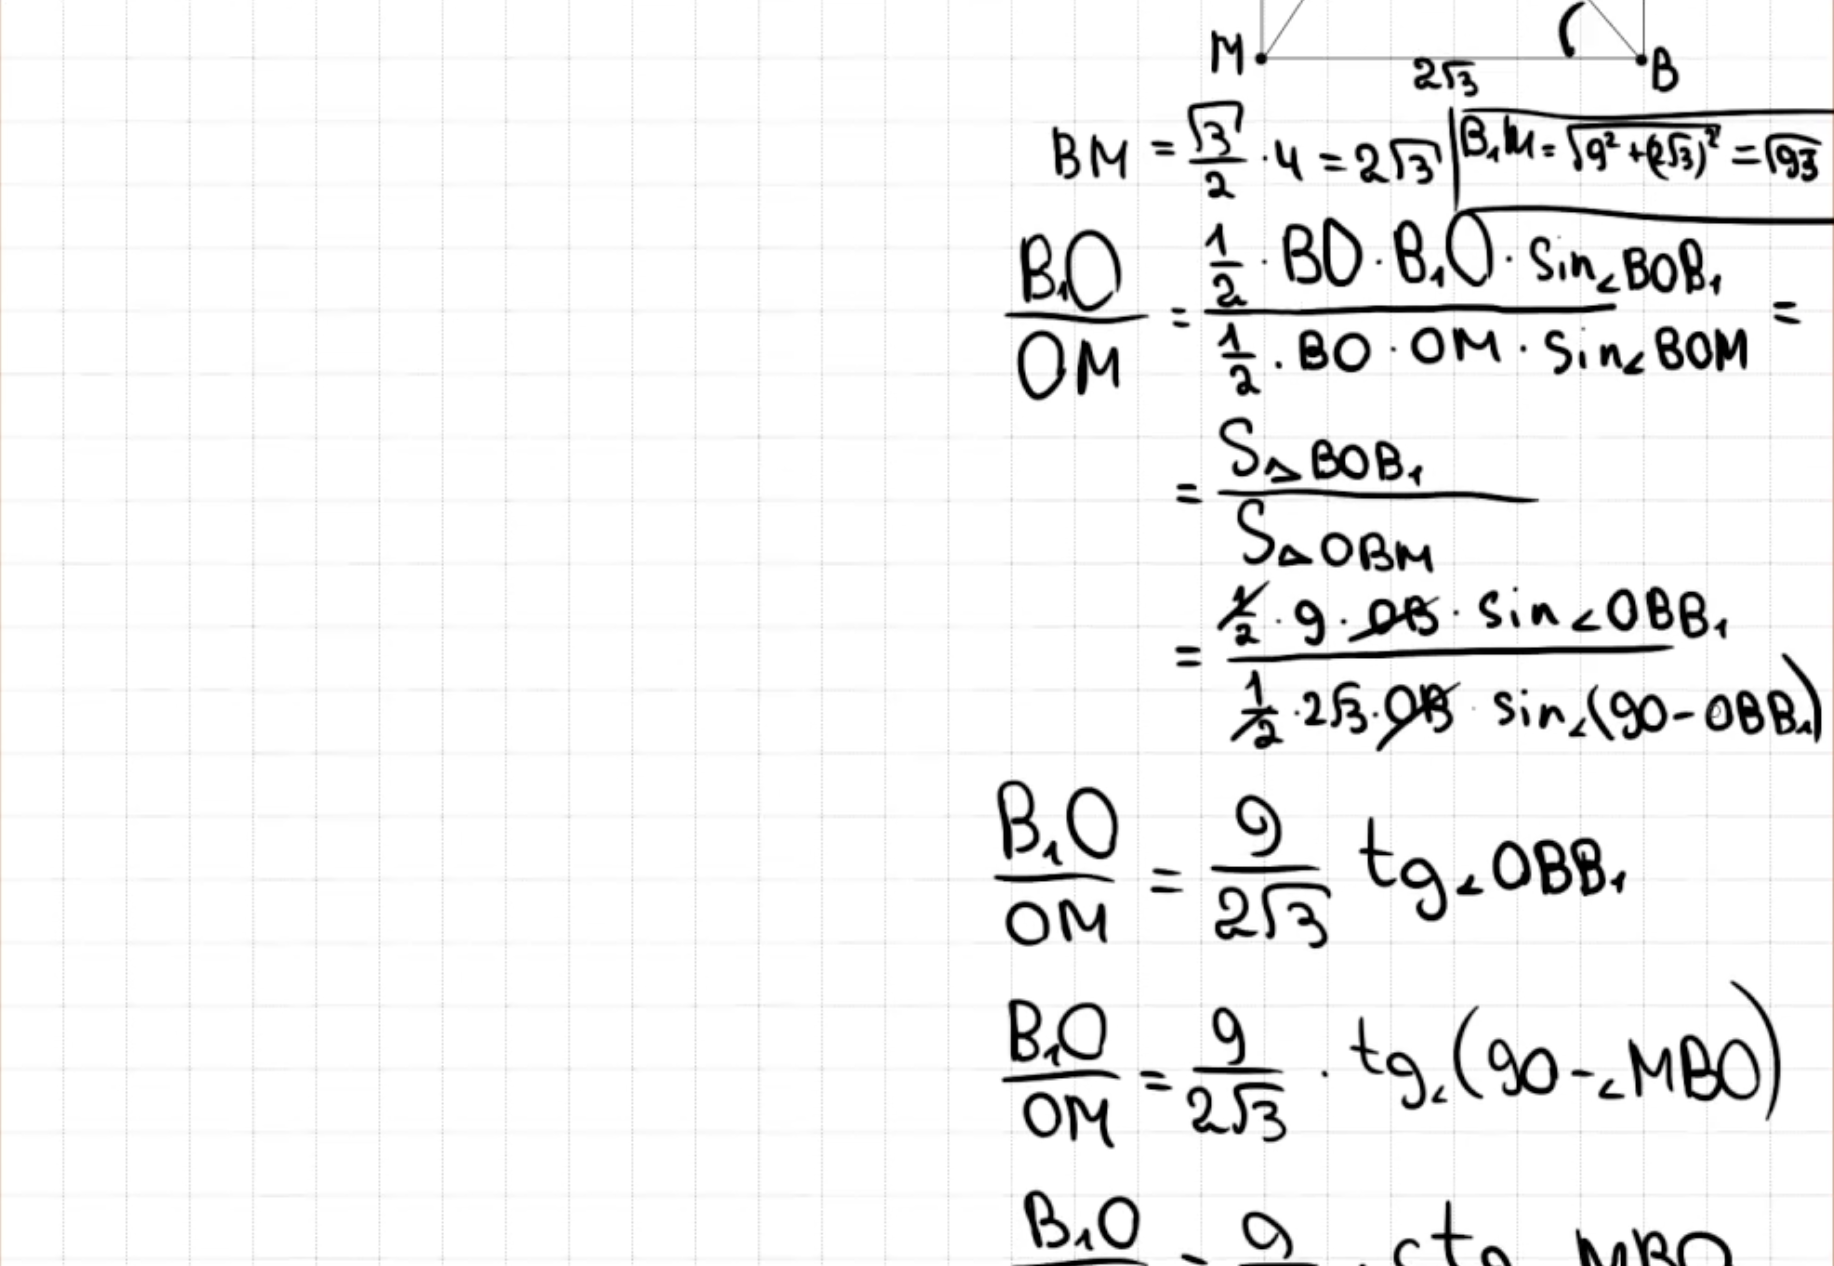 M 2√3 B
BM = √3/2 · 4 = 2√3 | B₁M = √(9² + (2√3)²) = √93
B₁O/OM = (1/2 · BO · B₁O · sin∠BOB₁)/(1/2 · BO · OM · sin∠BOM) =
= S△BOB₁/S△OBM
= (1/2 · 9 · OB · sin∠OBB₁)/(1/2 · 2√3 · OB · sin∠(90-OBB₁))
B₁O/OM = 9/(2√3) tg∠OBB₁
B₁O/OM = 9/(2√3) · tg∠(90-∠MBO)
B₁O = 9 · ctg MBO